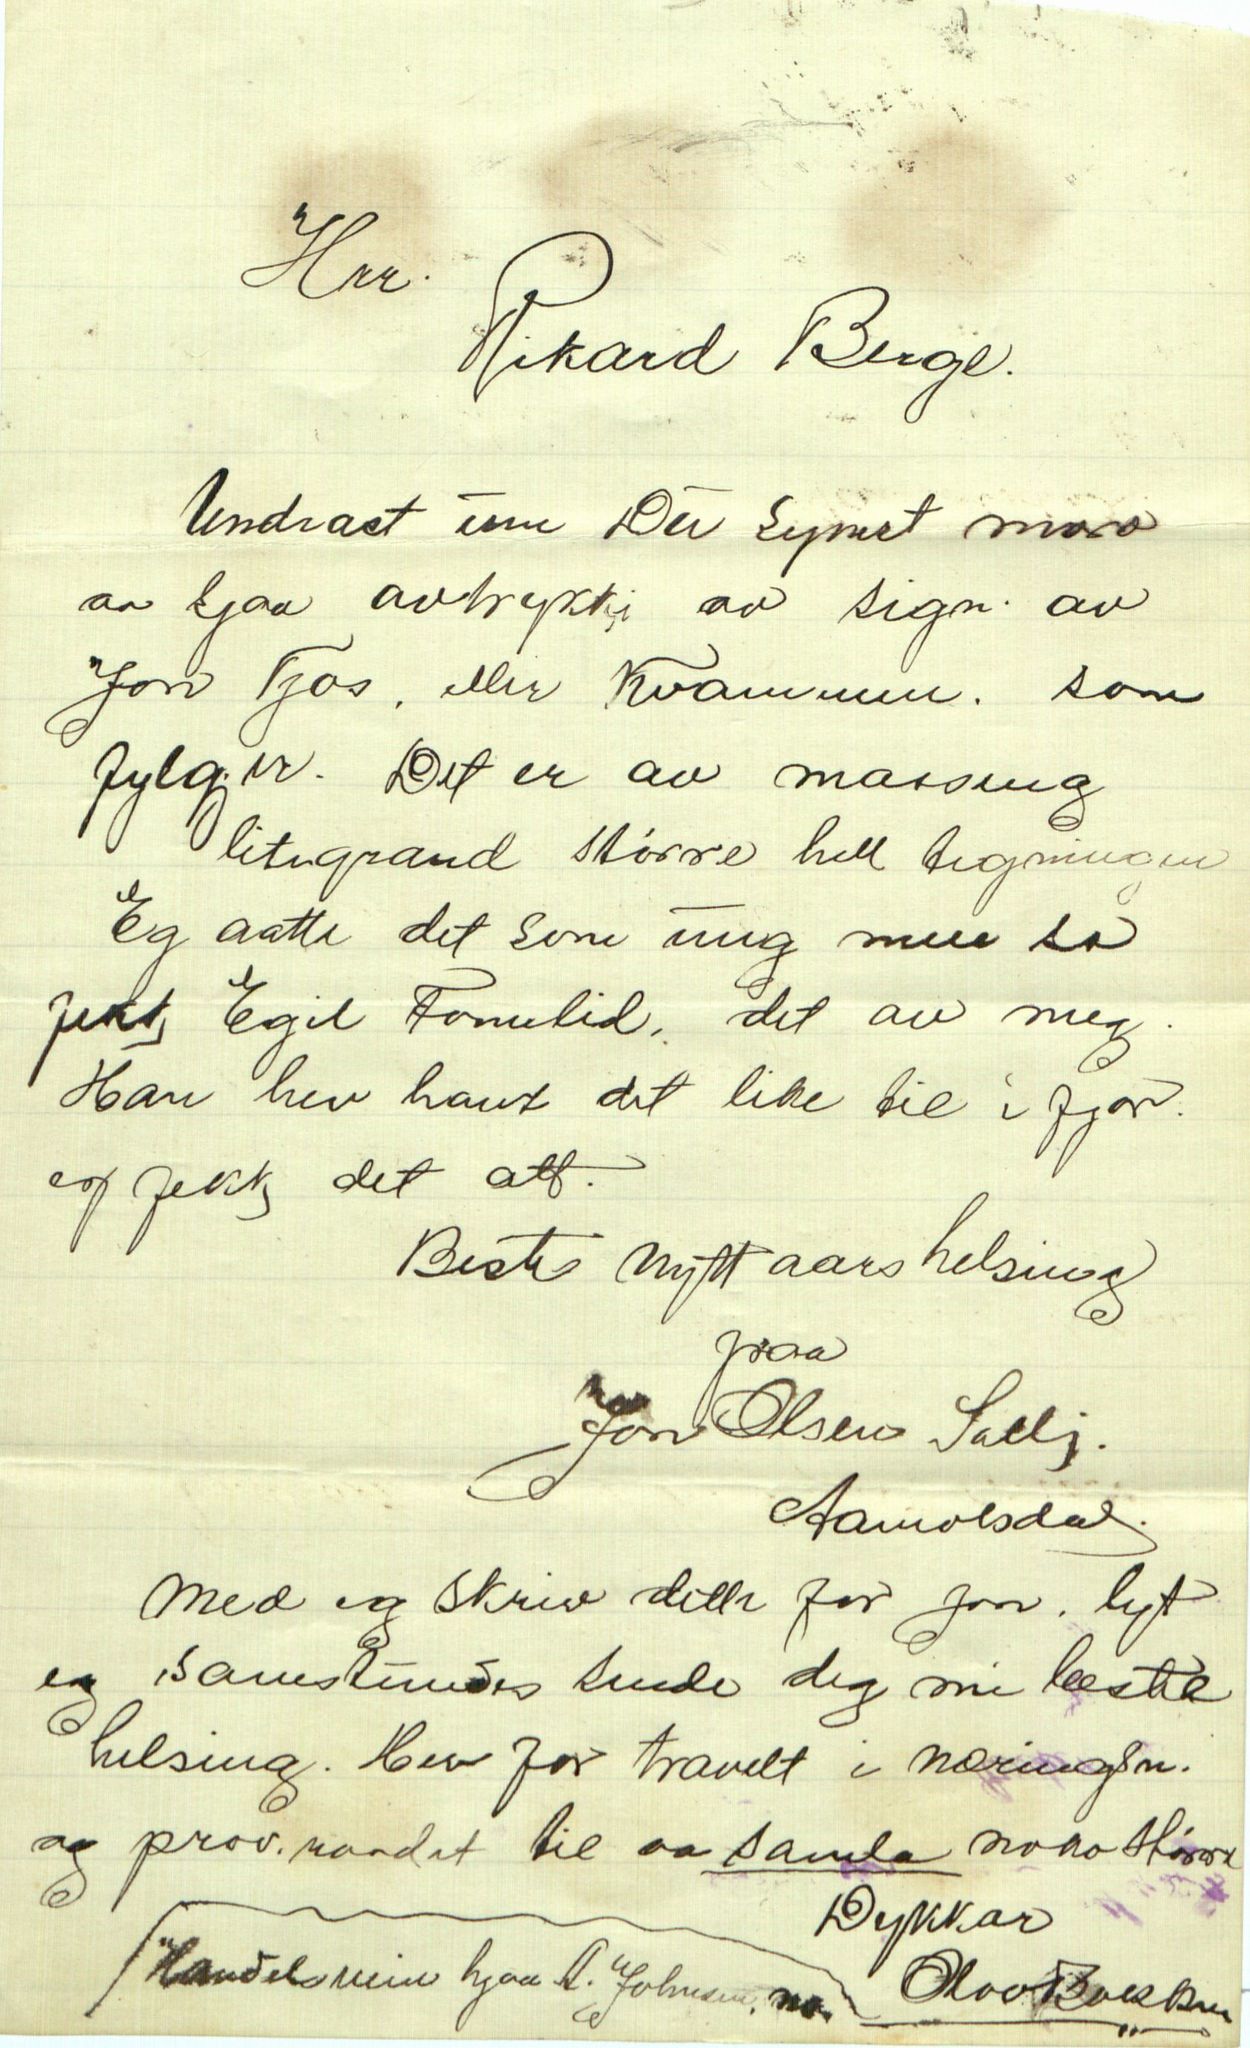 Hrr.
Rikard Berge.
Undrast um Du synest moro
aa sjaa avtrykkj av sign. av
Jon Tjos, eller Kvammen. som
fylgjer. Det er av massing
litegrand større hell tegningen
Eg aatte det som ung men so
fekk Egil Tomelid, det av meg.
Han hev havt det like til i fjor.
eg fekk det att.
Beste nyttaarshelsing
fraa
Jon Olsen Sallj.
Aamotsdal.
Med eg skriv dette for Jon. lyt
eg samstundes sende deg mi beste
helsing. Hev for travelt i næringen.
og prov. raadet til aa samla noko større
Dykkar
Olav
Handelsmin hjaa A. Johnsen. no.